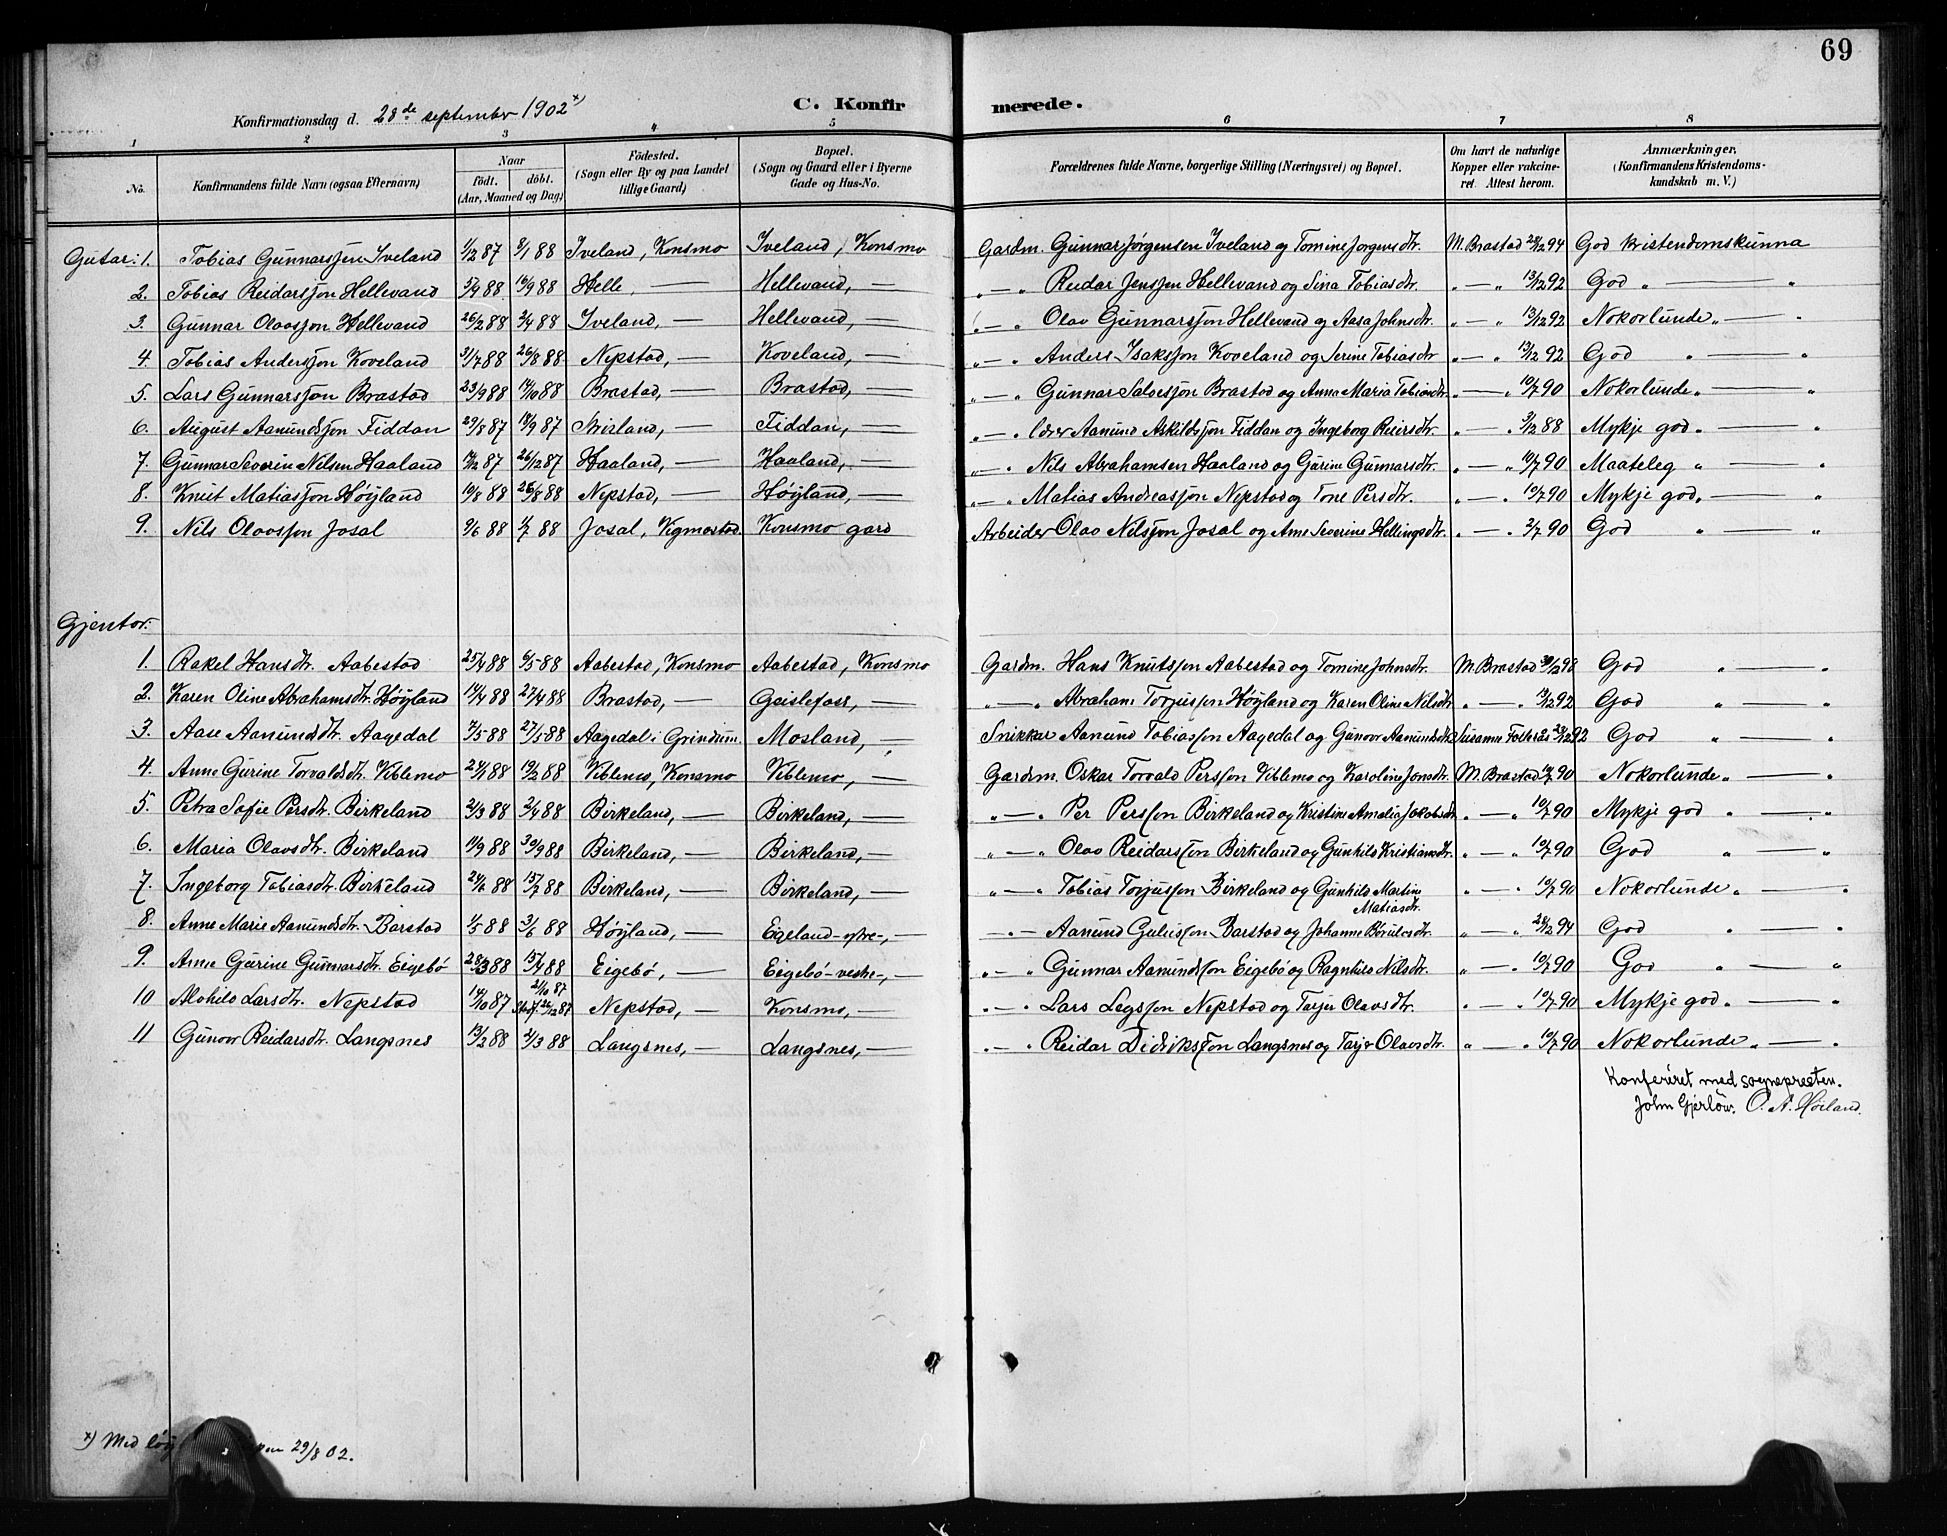 69
C. Konfirmerede.
Konfirmationsdag d. 28de september 1902 x)
1 2 3 4 5 6 7 8
No. Konfirmandens fulde Navn (ogsaa Efternavn) Naar födt. döbt. (Aar, Maaned og Dag) Födested. (Sogn eller By og paa Landet tillige Gaard) Bopæl. (Sogn og Gaard eller i Byerne Gade og Hus-No. Forældrenes fulde Navne, borgerlige Stilling (Næringsvei) og Bopæl. Om havt de naturlige Kopper eller vakcineret. Attest herom. Anmærkninger. (Konfirmandens Kristendomskundskab m. V.)
Gutar: 1. Tobias Gunnarssen Iveland 1/12 87 8/1 88 Iveland, Konsmo Iveland, Konsmo Gardm. Gunnar Jørgensen Iveland og Tomine Jorgensdtr. M. Brastad 28/2 94 God kristendomskunna
2. Tobias Reidarsson Hellevand 5/9 88 16/9 88 Helle, — Hellevand, — „ — „ Reidar Jensson Hellevand og Sina Tobiasdtr. „ — „ 13/12 92 God „ — „
3. Gunnar Olavsson Hellevand 26/2 88 2/4 88 Iveland, — Hellevand, — „ — „ Olav Gunnarsson Hellevand og Aasa Johnsdtr. „ — „ 13/12 92 Nokorlunde „ — „
4. Tobias Andersson Koveland 31/7 88 26/8 88 Nepstad, — Koveland, — „ — „ Anders Isaksson Koveland og Serine Tobiasdtr „ — „ 13/12 92 God „ — „
5. Lars Gunnarsson Brastad 23/9 88 14/10 88 Brastad, — Brastad, — „ — „ Gunnar Salvesson Brastad og Anna Maria Tobiasdtr „ — „ 10/7 90 Nokorlunde „ — „
6. August Aanundsson Fiddan 29/8 87 18/9 87 — Fiddan, — „ — „ Aanund Askildsson Fiddan og Ingeborg Reiersdtr. „ — „ 3/12 88 Mykje god „ — „
7. Gunnar Severin Nilsen Haaland 14/12 87 26/12 87 Haaland, — Haaland, — „ — „ Nils Abrahamsen Haaland og Gurine Gunnarsdtr. „ — „ 10/7 90 Maateleg „ — „
8. Knut Matiasson Høyland 10/8 88 26/8 88 Nepstad, — Høyland, — „ — „ Matias Andreasson Nepstad og Tone Persdtr. „ — „ 10/7 90 Mykje god „ — „
9. Nils Olavsson Josal 9/6 88 1/7 88 Josal, Vigmostad Konsmo gard Arbeider Olav Nilsson Josal og Ane Severine Hellingsdtr. „ — „ 2/7 90 God „ — „
Gjentor:
1. Rakel Hansdtr. Aabestad 25/4 88 6/5 88 Aabestad, Konsmo Aabestad, Konsmo Gardm. Hans Knutsson Aabestad og Tomine Johnsdtr. M. Brastad 30/12 98 God „ — „
2. Karen Oline Abrahamsdtr. Høyland 14/4 88 27/4 88 Brastad, — Geislefoss, — „ — „ Abraham Torjusson Høyland og Karen Oline Nilsdtr „ — „ 13/12 92 God „ — „
3. Aase Aanundsdtr. Aagedal 7/5 88 27/5 88 Aagedal i Grindum. Mosland, — Snikkar Aanund Tobiasson Aagedal og Gunvor Aanundsdtr Susanne 92 God „ — „
4. Anne Gurine Torvaldsdtr. Viblemo 24/1 88 19/2 88 Viblemo, Konsmo Viblemo, — Gardm. Oskar Torvald Persson Viblemo og Karoline Jonsdtr. M. Brastad 10/7 90 Nokorlunde „ — „
5. Petra Sofie Persdtr. Birkeland 2/3 88 2/4 88 Birkeland, — Birkeland, — „ — „ Per Persson Birkeland og Kristine Amalia Jakobsdtr „ — „ 10/7 90 Mykje god „ — „
6. Maria Olavsdtr. Birkeland 11/9 88 30/9 88 Birkeland, — Birkeland, — „ — „ Olav Reidarsson Birkeland og Gunhild Kristiansdtr. „ — „ 10/7 90 God „ — „
7. Ingeborg Tobiasdtr. Birkeland 24/6 88 15/7 88 Birkeland, — Birkeland, — „ — „ Tobias Torjusson Birkeland og Gunhild Martine Matiasdtr. „ — „ 10/7 90 Nokorlunde „ — „
8. Anne Marie Aanundsdtr. Barstad 1/5 88 3/6 88 Høyland, — Eigeland-øfre-, — „ — „ Aanund Barstad og Johanne dtr. „ — „ 28/2 94 God „ — „
9. Anne Gurine Gunnarsdtr. Eigebø 28/3 88 15/4 88 Eigebø, — Eigebø-vestre-, — „ — „ Gunnar Aanundsson Eigebø og Ragnhild Nilsdtr. „ — „ 10/7 90 God „ — „
10 Alvhild Larsdtr. Nepstad 14/10 87 21/10 87 Stadf. 26/12 87 Nepstad, — Konsmo, — „ — „ Lars Nepstad og Tarjer Olavsdtr. „ — „ 10/7 90 Mykje god „ — „
11 Gunvor Reidarsdtr. Langsnes 13/2 88 4/3 88 Langsnes, — Langsnes, — „ — „ Reidar Didriksson Langsnes og Tarjer Olavsdtr. „ — „ 10/7 90 Nokorlunde „ — „
Konferéret med sognepresten.
John Gjerløw. O. A. Høiland.
x) Med 29/8 02.